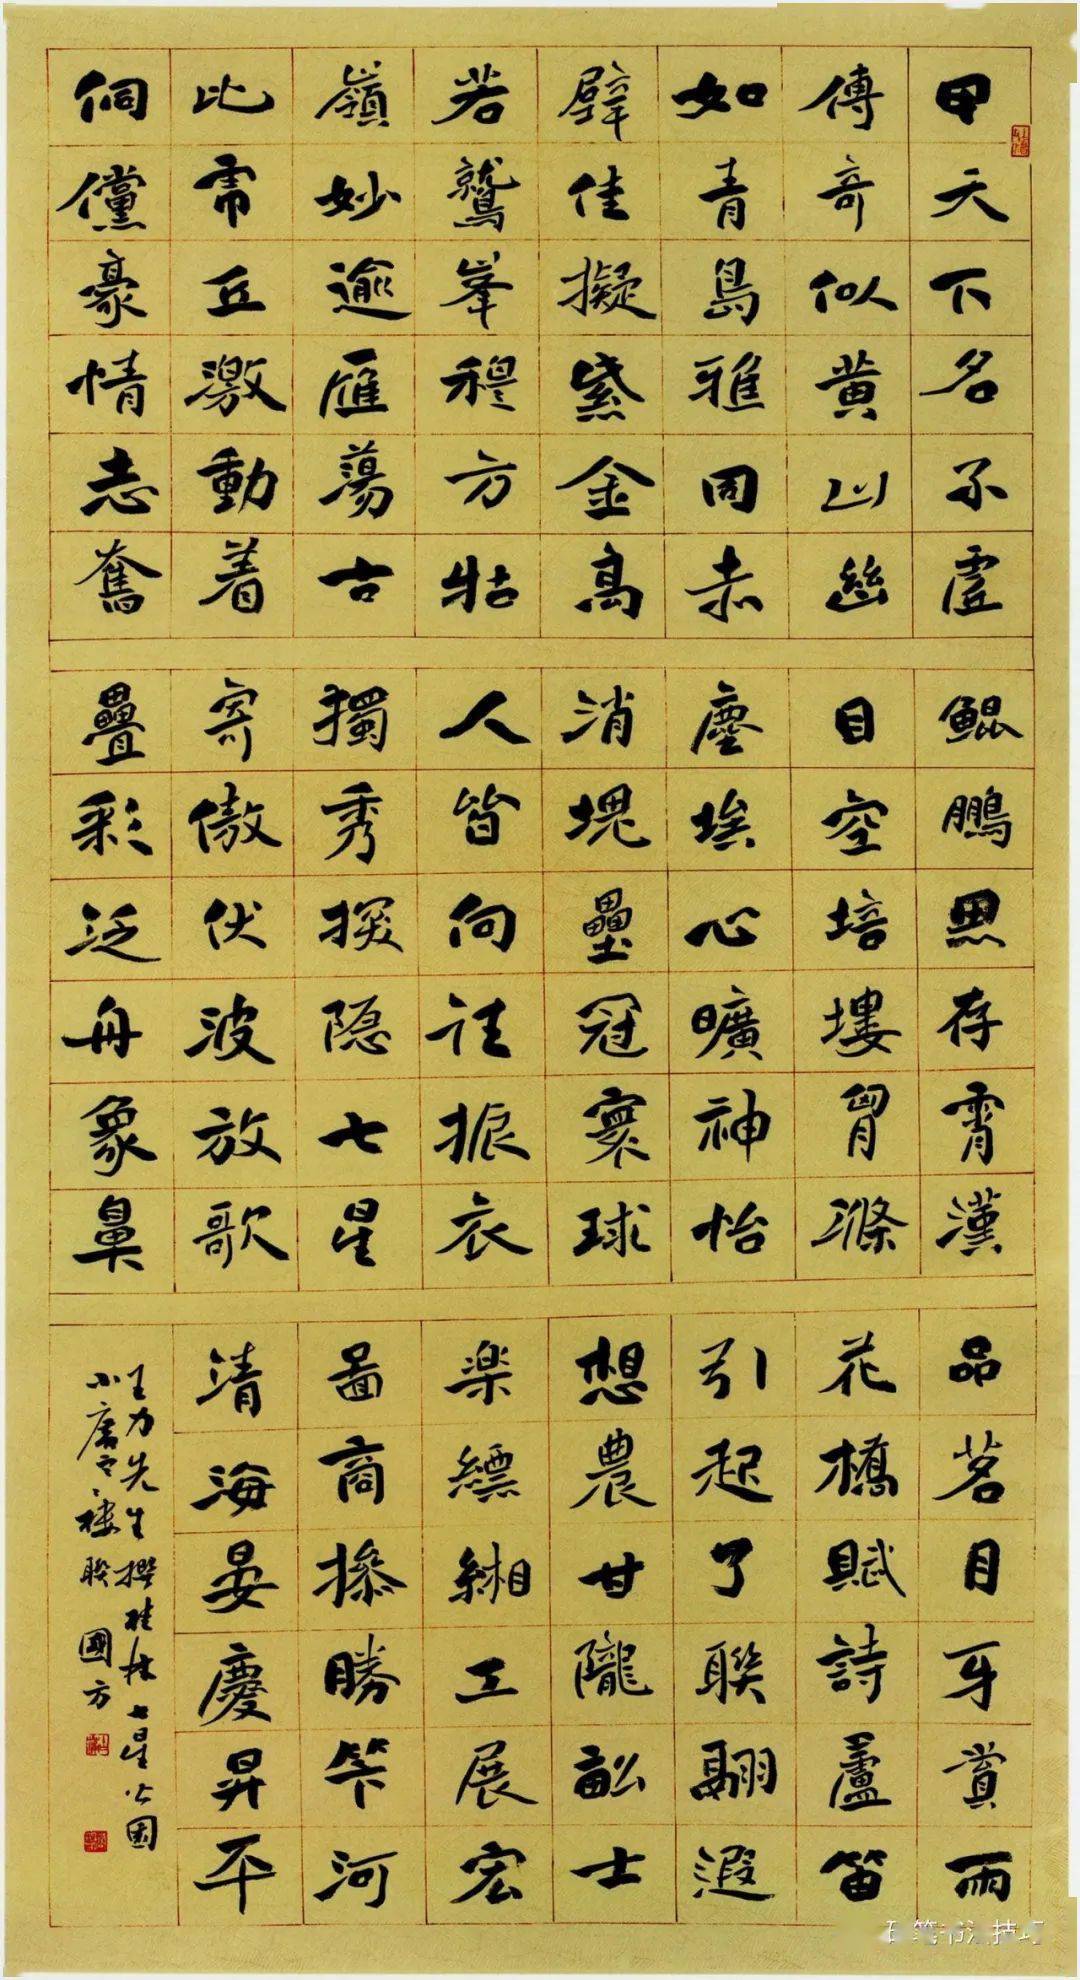 甲天下名不虛
傳奇似黃山幽
如青島雅同赤
壁佳擬紫金高
若鷲峯穆方牯
嶺妙逾雁蕩古
比雩丘激動着
倜儻豪情志奮
鯤鵬思存霄漢
目空培塿胷滌
塵埃心曠神怡
消塊壘冠寰球
人皆向往振衣
獨秀探隐七星
寄傲伏波放歌
疊彩泛舟象鼻
品茗月牙賞雨
花橋賦詩蘆笛
引起了聯翩遐
想農甘隴畝士
楽縹緗工展宏
啚商操勝笇河
清海晏慶昇平
王力先生撰桂林七星公園
小廣寒樓聯 國方